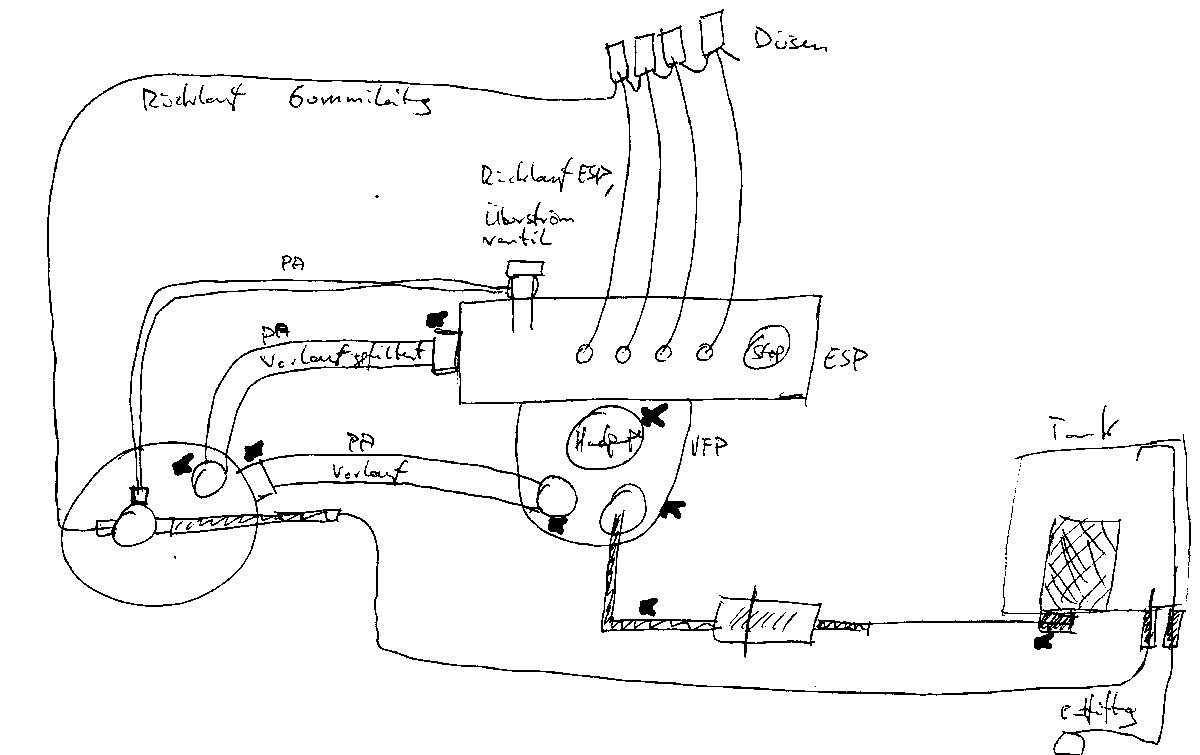 Düsen
Rücklauf Gummileitg
Rücklauf ESP,
Überström
ventil
PA
PA
Vorlauf gefiltert
Stop
ESP
Handpumpe
VFP
PA
Vorlauf
Tank
Entlüftg